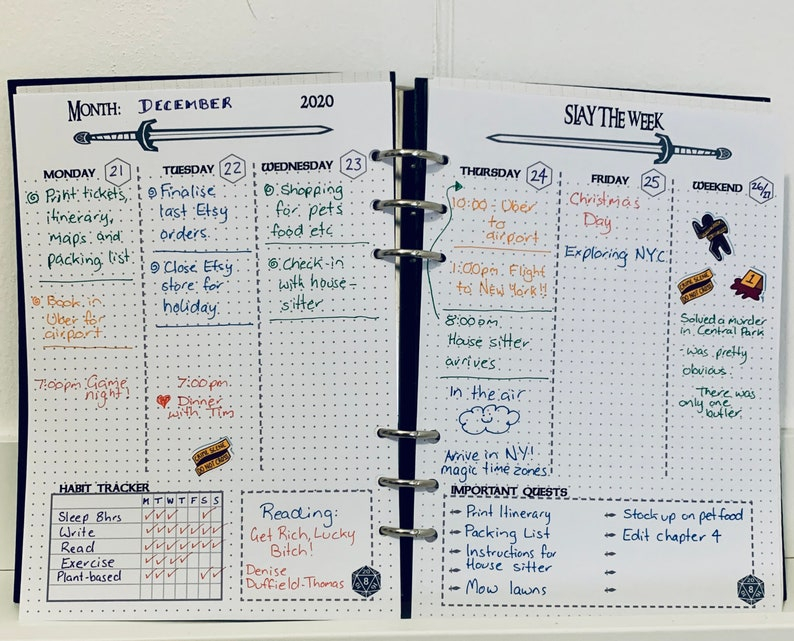 MONTH: DECEMBER 2020
MONDAY 21
Print tickets,
itinerary,
maps and
packing list
Book in
Uber for
airport
7:00pm Game
night!
TUESDAY 22
Finalise
last Etsy
orders.
Close Etsy
store for
holiday.
7:00pm
Dinner
with Tim
CRIME SCENE
DO NOT CROSS
WEDNESDAY 23
Shopping
for pets
food etc
Check-in
with house-
sitter
HABIT TRACKER
M T W T F S S
Sleep 8hrs
Write
Read
Exercise
Plant-based
Reading:
Get Rich, Lucky
Bitch!
Denise
Duffield-Thomas
8
SLAY THE WEEK
THURSDAY 24
10:00 - Uber
to
airport
1:00pm Flight
to New York!!
8:00pm
House sitter
arrives
In the air
Arrive in NY!
magic time zones
FRIDAY 25
Christmas
Day
Exploring NYC
WEEKEND 26/27
CRIME SCENE
DO NOT CROSS
1
Solved a murder
in Central Park
- was pretty
obvious.
There was
only one
butler.
IMPORTANT QUESTS
Print Itinerary
Packing List
Instructions for
House sitter
Mow lawns
Stock up on pet food
Edit chapter 4
8